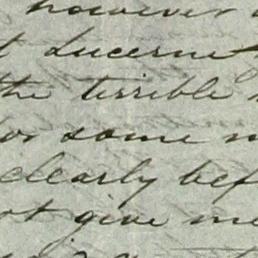 however
Lucerne
the terrible
some
clearly bef
not give me